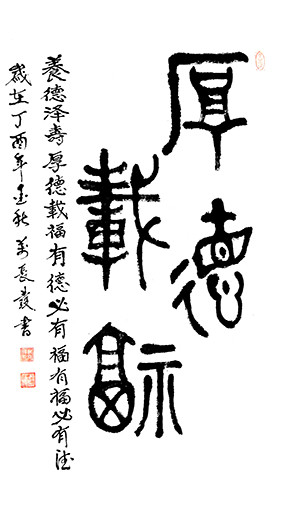 厚德
載福
養德泽壽厚德載福有德必有福有福必有德
歲在丁酉年金秋萬長發書